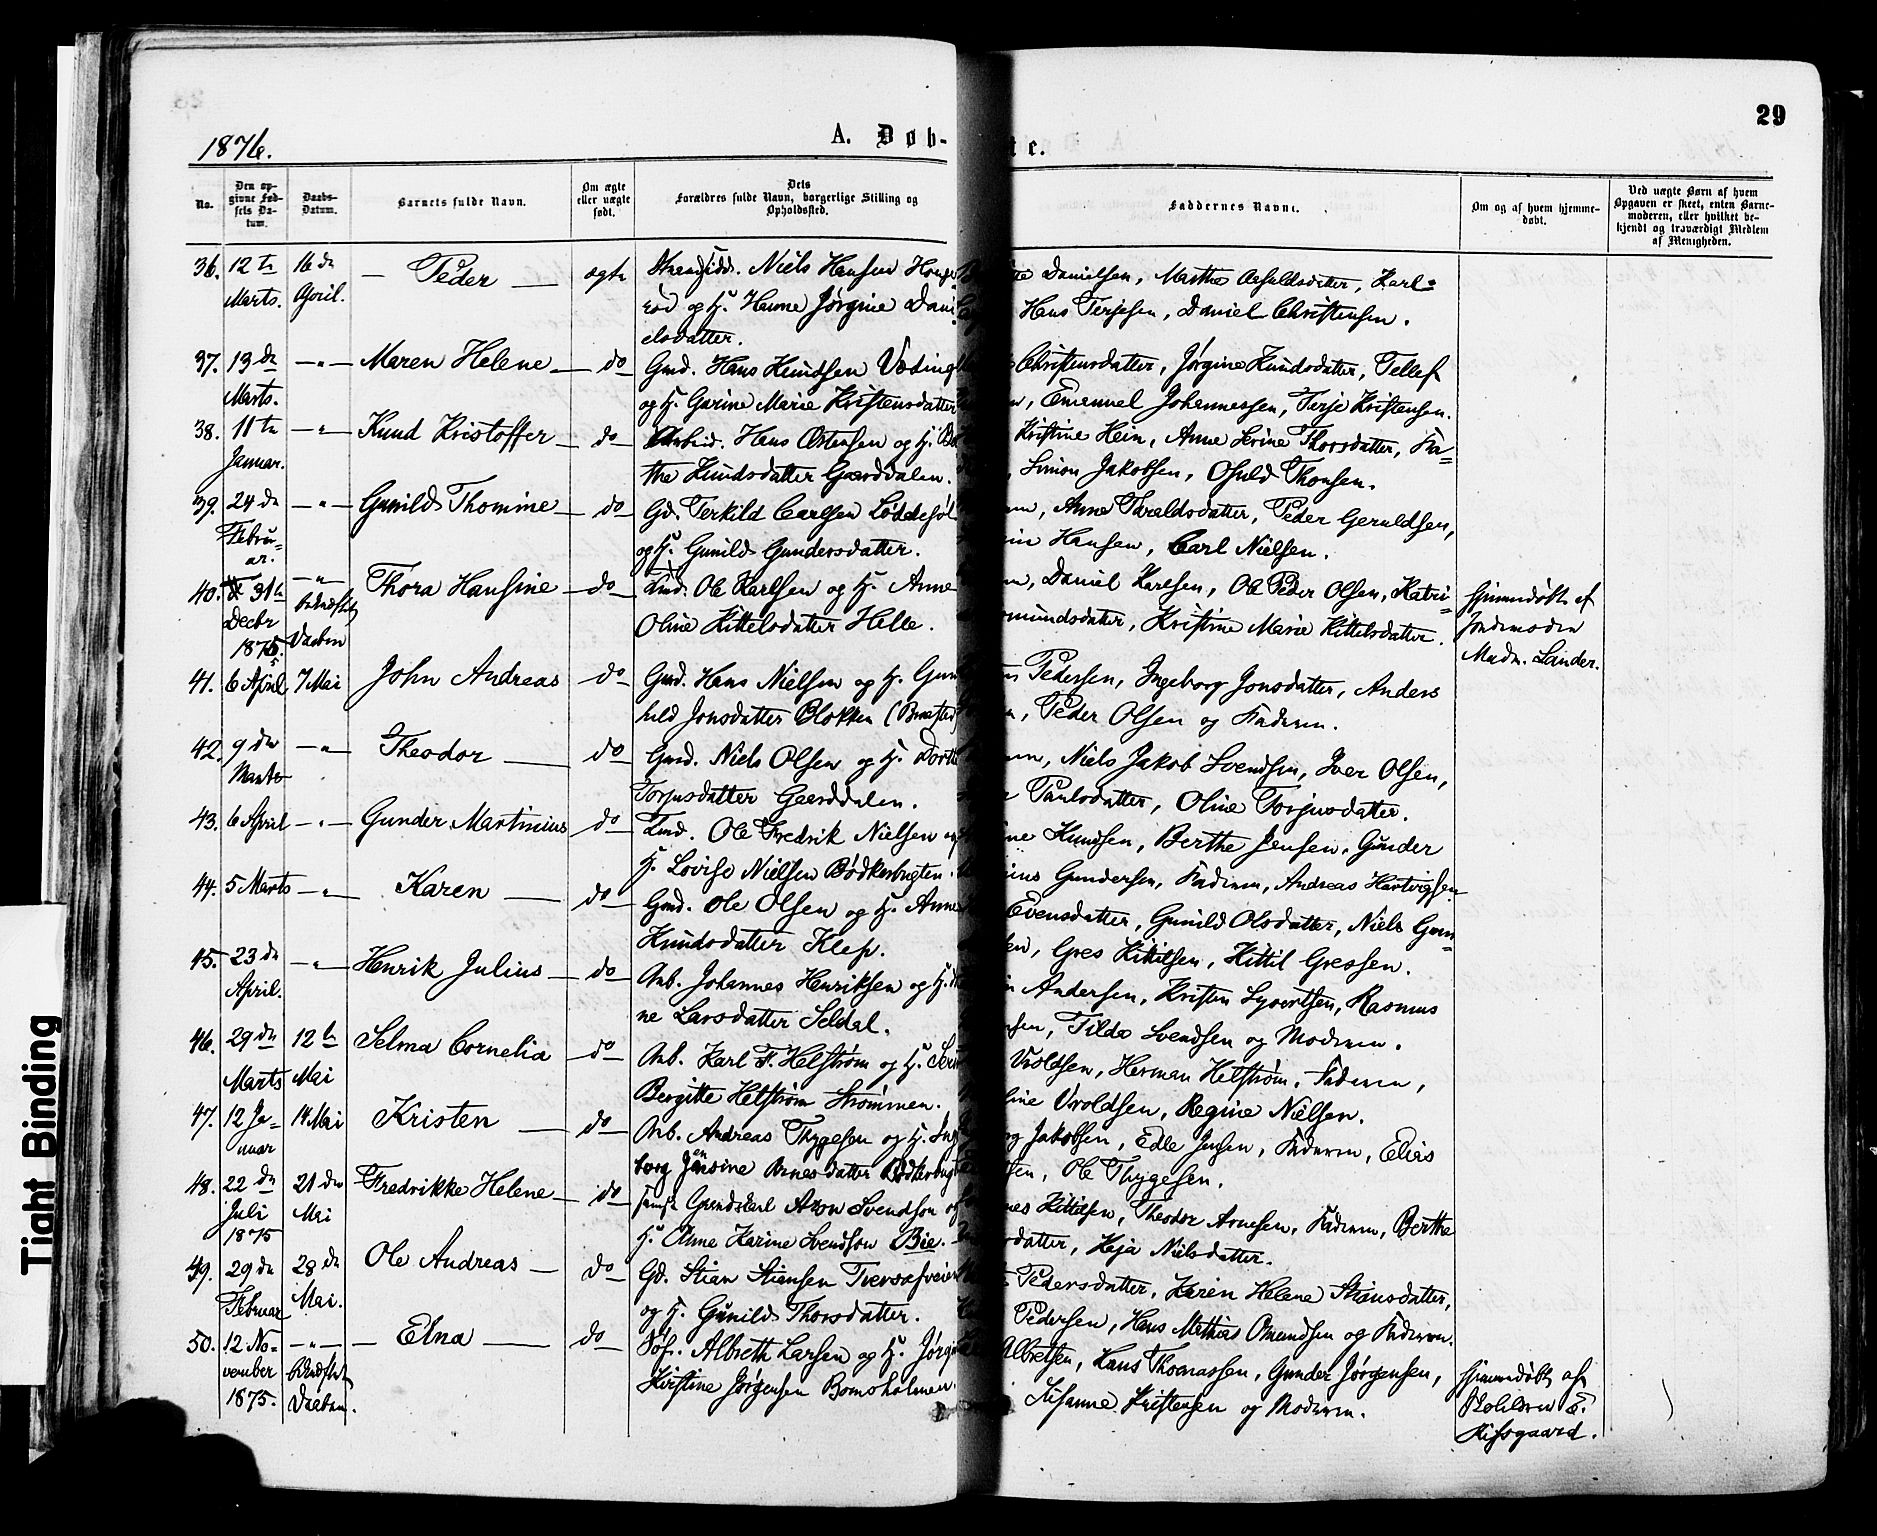 29
1876.
A. Døb-
te.
No.
Den op-
givne Fød-
sels Da-
tum.
Daabs-
Datum.
Barnets fulde Navn.
Om ægte
eller uægte
født.
Dets
Forældres fulde Navn, borgerlige Stilling og
Opholdssted.
Faddernes Navne.
Om og af hvem hjemme-
døbt.
Ved uægte Børn af hvem
Opgaven er skeet, enten Barne-
moderen, eller hvilket be-
kjendt og troværdigt Medlem
af Menigheden.
36. 12te Marts. 16de April. — Peder — ægte
Niels Hansen
og H. Hanne Jørgine Dani-
elsdatter.
Danielsen, Marthe Osfuldsdatter, Karl
Hans Terjesen, Daniel Christensen.
37. 13de Marts. —"— Maren Helene — do
Gmd. Hans Knudsen Væding
og H. Garine Marie Kristensdatter
Christensdatter, Jørgine Knudsdatter, Tellef
Emanuel Johannessen, Terje Kristensen.
38. 11te Januar. —"— Knud Kristoffer — do
Arbeid. Hans Ostensen og H.
the Knudsdatter Gærddalen.
Kristine Hein, Anne Serine Thorsdatter, Fa=
Simon Jakobsen, Osuld Thonsen.
39. 24de Febru=ar. —"— Gunild Thomine — do
Gd. Terkild Carlsen Løddesøl
og H. Gunild Gundersdatter.
Anne Thraldsdatter, Peder Geruldsen,
Hansen, Carl Nielsen.
40. 31te Decbr 1875. —"— Vaaben Thora Hansine — do
Ole Karlsen og H. Anne
Oline Kittelsdatter Helle.
Daniel Karlsen, Ole Peder Olsen, Katri-
mundsdatter, Kristine Marie Kittelsdatter.
Hjemmedøbt af
Jordemoder
Mad. Sander.
41. 6 April 7 Mai John Andreas do
Gmd. Hans Nielsen og H. Gun
hild Jonsdatter Blokken (Braastad)
Pedersen, Ingeborg Jonsdatter, Anders
Peder Olsen og Faderen.
42. 9de Marts —"— Theodor — do
Gmd. Niels Olsen og H. Dorth
Torjusdatter Gaarddalen.
Niels Jakob Svendsen, Iver Olsen,
Paulsdatter, Oline Torjusdatter.
43. 6 April —"— Gunder Martinius do
Ole Fredrik Nielsen og
H. Lovise Nielsen Bødkerbugten.
Knudsen, Berthe Jensen, Gunder
Gundersen, Faderen, Andreas Hartvigsen
44. 5 Marts —"— Karen — do
Gmd. Ole Olsen og H. Anne
Knudsdatter Klep.
Evensdatter, Gunild Olsdatter, Niels Gun=
Gres Kittilsen, Kittil Gressen.
45. 23de April. —"— Henrik Julius — do
Arb. Johannes Henriksen og H.
ne Larsdatter Seldal.
Andersen, Kristen Syvertsen, Rasmus
Tilda Svendsen og Moderen.
46. 29de Marts 12te Mai Selma Cornelia do
Arb. Karl F. Helstrøm og H.
Bergitte Helstrøm Strømmen.
Vroldsen, Herman Helstrøm, Faderen,
line Vroldsen, Regine Nielsen.
47. 12 Ja-nuar 14 Mai Kristen — do
Arb. Andreas Thygesen og H. Inge
borg Jensine Arnesdatter Bødkerbugt
Jakobsen, Edle Jensen, Faderen, Elias
Ole Thygesen.
48. 22de Juli 1875 21de Mai Fredrikke Helene — do
Aron Svendson og
H. Anne Karine Svendson Bie.
Kittilsen, Theodor Arnesen, Faderen, Berthe
datter, Kaja Nielsdatter.
49. 29de Februar 28de Mai. Ole Andreas — do
Gd. Stian Stiansen
og H. Gunild Thorsdatter.
Pedersdatter, Karen Helene Stiansdatter,
Pedersen, Hans Mathias Omundsen og Faderen.
50. 12 No-vember 1875. —"— Daaben. — Elna — do
Søf. Albreth Larsen og H. Jørgi
Kirstine Jørgensen Bomsholmen.
Albretsen, Hans Thomassen, Gunder Jørgensen,
Susanne Kristensen og Moderen.
Hjemmedøbt af
Kirsgaard.
Tight Binding